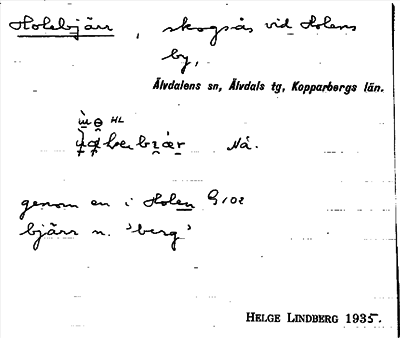 Holsbjärr, skogsås vid Holens
by,
Älvdalens sn, Älvdals tg, Kopparbergs län.
HL
Nå.
genom en i Holen G102
bjärr n. 'berg'
HELGE LINDBERG 1935.